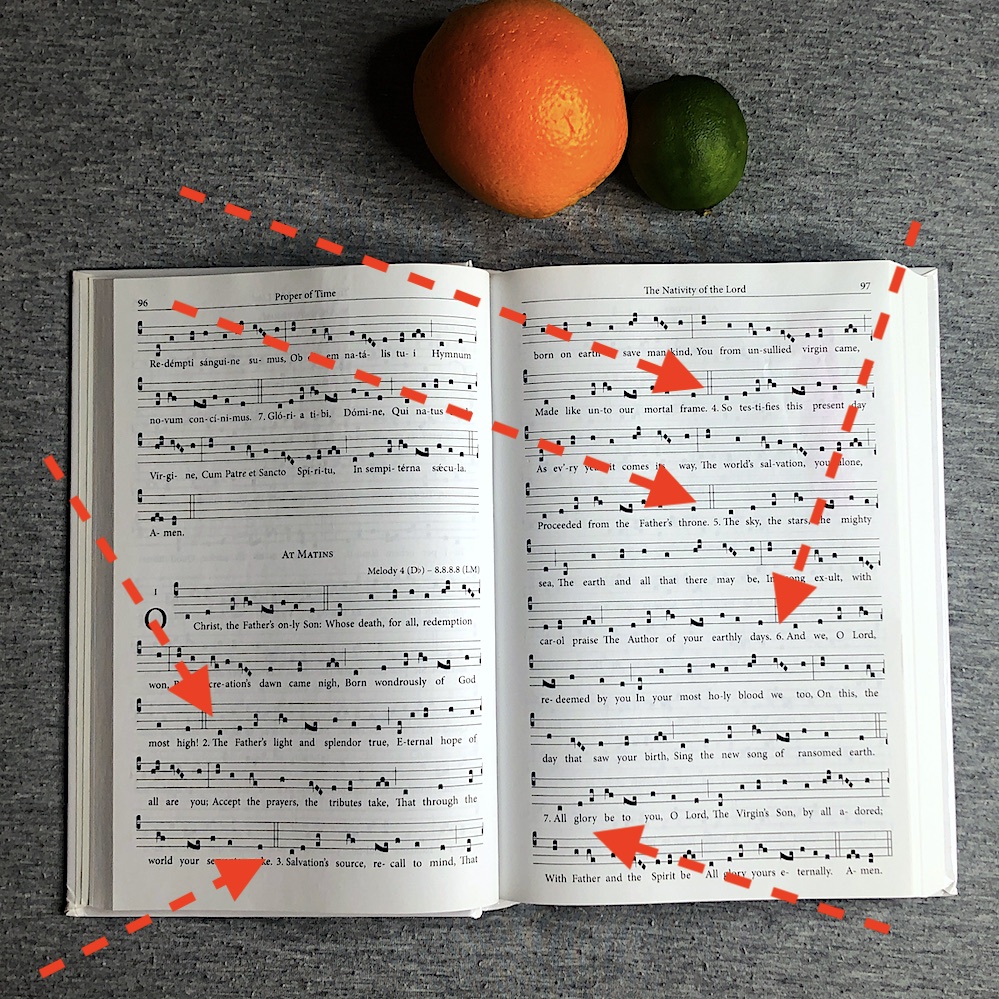 96
Proper of Time
Re-démpti sángui-ne su-mus, Ob em na-tá- lis tu- i Hymnum
no-vum con-cí-ni-mus. 7. Gló-ri- a ti-bi, Dómi-ne, Qui na-tus
Vír-gi- ne, Cum Patre et Sancto Spí-ri-tu, In sempi-térna sǽcu-la.
A- men.
At Matins
Melody 4 (D♭) – 8.8.8.8 (LM)
I
O Christ, the Father's on-ly Son: Whose death, for all, redemption
won, cre-ation's dawn came nigh, Born wondrously of God
most high! 2. The Father's light and splendor true, E-ternal hope of
all are you; Accept the prayers, the tributes take, That through the
world your ke. 3. Salvation's source, re- call to mind, That
The Nativity of the Lord
97
born on earth save mankind, You from un-sullied virgin came,
Made like un-to our mortal frame. 4. So tes-ti-fies this present day
As ev'-ry year it comes its way, The world's sal-vation, you alone,
Proceeded from the Father's throne. 5. The sky, the stars, the mighty
sea, The earth and all that there may be, In song ex-ult, with
car-ol praise The Author of your earthly days. 6. And we, O Lord,
re-deemed by you In your most ho-ly blood we too, On this, the
day that saw your birth, Sing the new song of ransomed earth.
7. All glory be to you, O Lord, The Virgin's Son, by all a- dored;
With Father and the Spirit be All glory yours e- ternally. A- men.